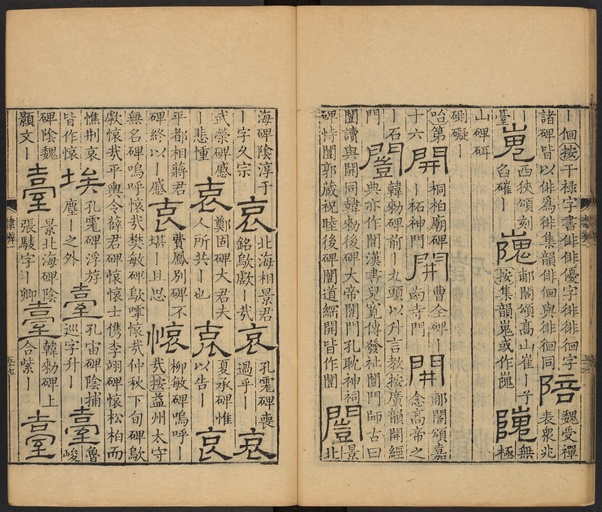 丨佪按干祿字書俳俳優字徘徘徊字陪魏受禪
諸碑皆以俳為徘集韻徘佪與俳佪同表衆兆
臺丨嵬西狹頌刻郙閣頌高山崔丨兮無
臽確丨按集韻嵬或作極
山碑研
硎礙丨
咍第開桐柏廟碑開曹全碑丨開郙閣頌嘉
十六丨柘神門南寺門念高帝之
丨石闓韓勑碑前丨九頭以升言教按廣韻開經
門典亦作闓漢書兒寬傳發祉闓門師古曰
闓讀與開同韓勑後碑大帝闓門孔耽神祠闓景
碑恃闓郭葳祝睦後碑闓道開皆作闓北
海碑陰淳于哀北海相景君哀孔霮碑喪哀
丨字久宗銘歇歔丨哉過乎丨
武榮碑感哀鄭固碑大君夫哀夏承碑惟哀
丨悲慟人所共丨也以告丨
平都相蔣君哀費鳳別碑不懷柳敏碑嗚呼丨
碑終以丨感堪丨且思哉按益州太守
無名碑嗚呼懷哉樊敏碑歇懷哉仲秋下旬碑歇
歔懷哉平輿令薛君碑懷懷士儁李翊碑懷松柏而
惟荆哀埃孔霮碑浮游臺孔宙碑陰捕臺魯
皆作懷塵丨之外巡字升丨峻
碑陰魏臺景北海碑陰臺韓勑碑上臺
顥文丨張駿字丨卿合紫丨